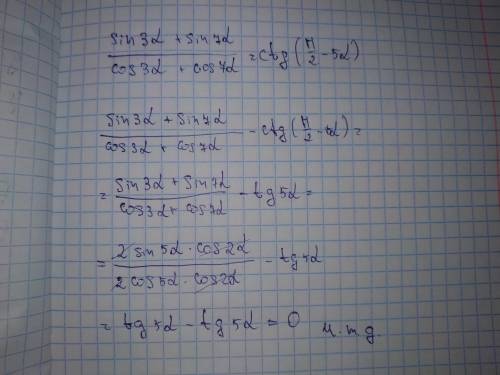 (sin3α + sin7α)/(cos3α + cos7α) = ctg(π/2 - 5α)
(sin3α + sin7α)/(cos3α + cos7α) - ctg(π/2 - 5α) =
= (sin3α + sin7α)/(cos3α + cos7α) - tg5α =
= (2sin5α · cos2α)/(2cos5α · cos2α) - tg5α
= tg5α - tg5α = 0 ч.т.д.